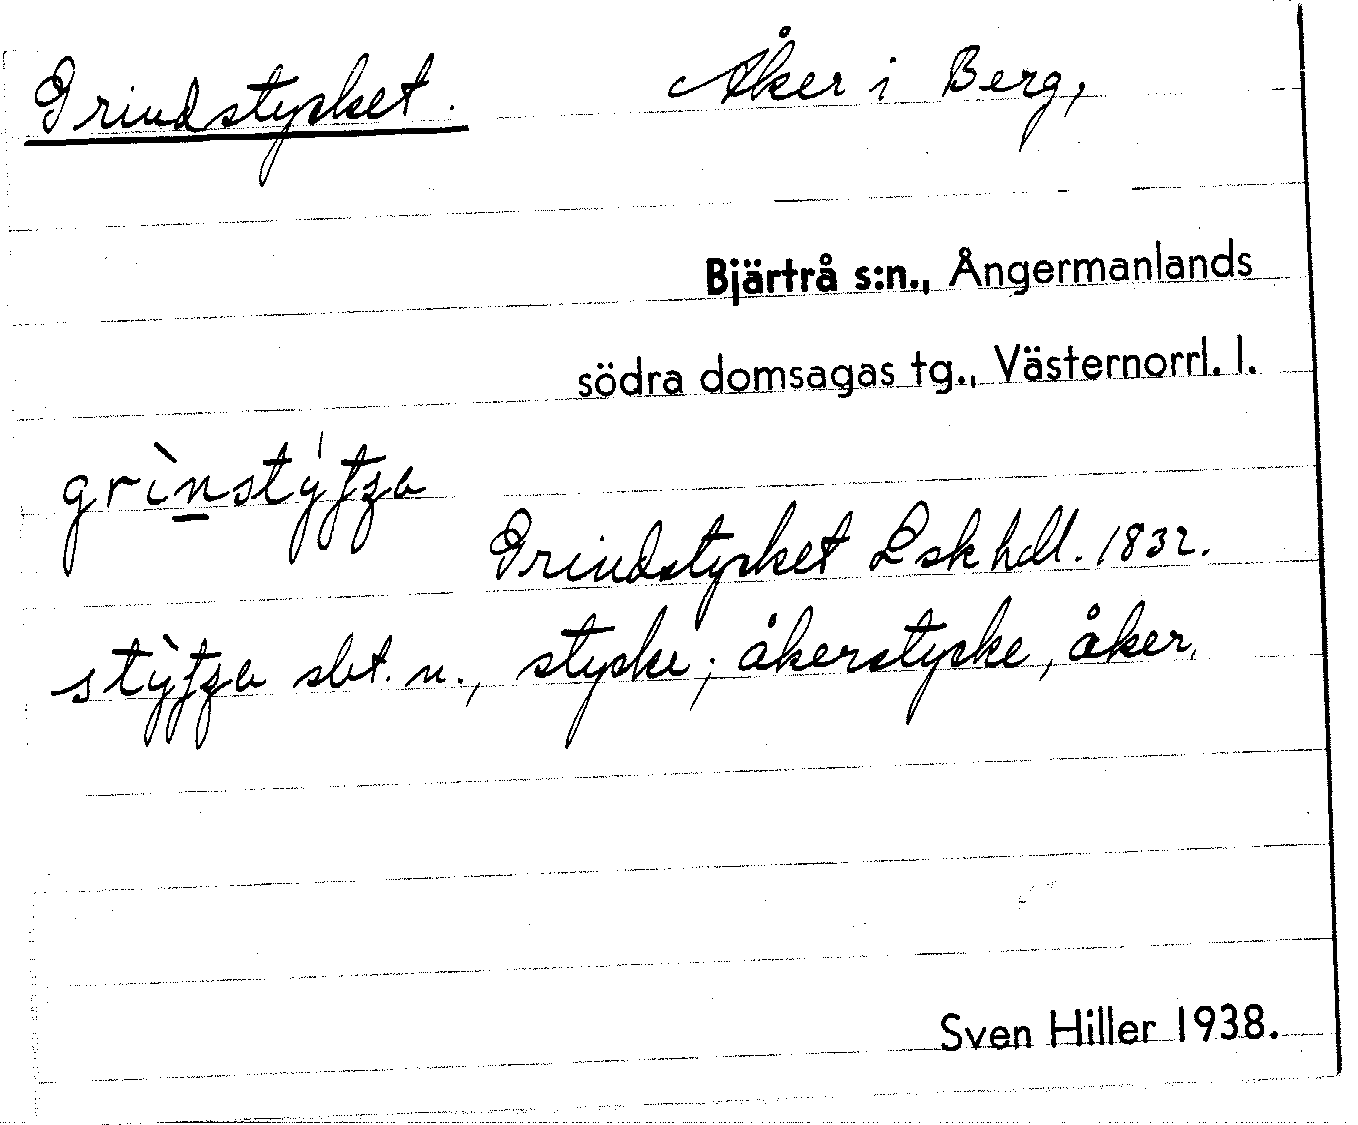 Grindstycket. Åker i Berg,
Bjärtrå s:n., Ångermanlands
södra domsagas tg., Västernorrl. l.
grìnstýtʃa
Grindstycket Lskhdl. 1832.
stỳtʃa sbt. n., stycke; åkerstycke, åker.
Sven Hiller 1938.